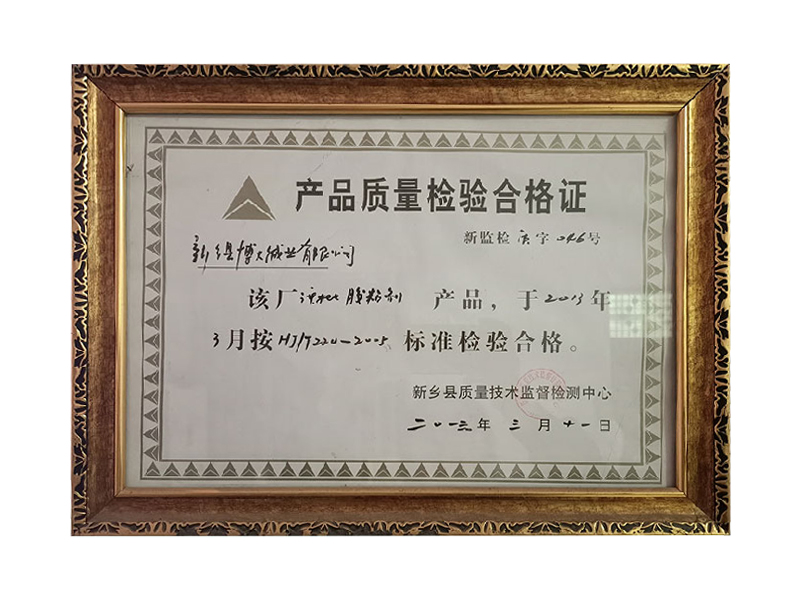 产品质量检验合格证
新监检质字046号
新乡县博大纸业有限公司
该厂 胶粘剂 产品，于2013年
3月按HJ/T220-2005标准检验合格。
新乡县质量技术监督检测中心
二〇一三年三月十一日